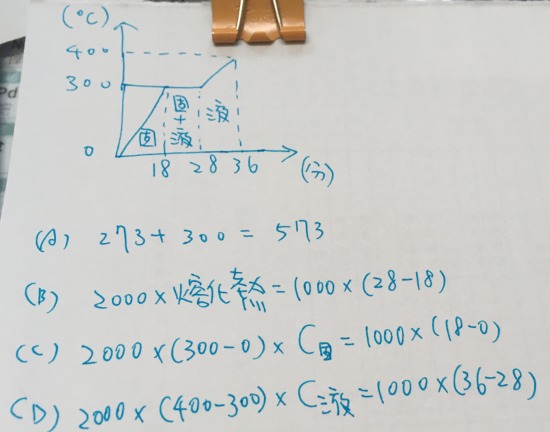 (°C)
400
300
0
固
固
+
液
液
18 28 36
(分)
(A) 273+300 = 573
(B) 2000×熔化熱=1000×(28-18)
(C) 2000×(300-0)×C固=1000×(18-0)
(D) 2000×(400-300)×C液=1000×(36-28)